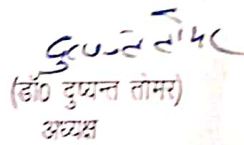 दुष्यन्त तोमर
(डॉ0 दुष्यन्त तोमर)
अध्यक्ष